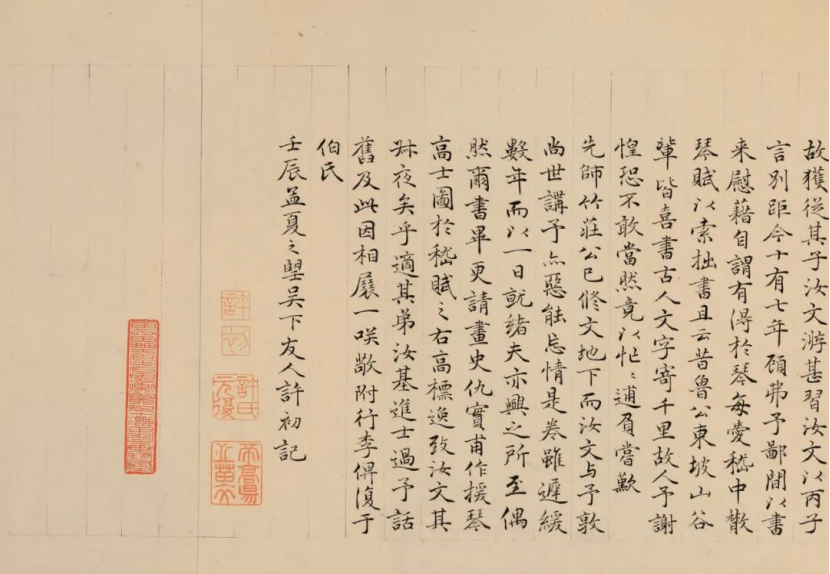 故獲從其子汝文游甚習汝文以丙子
言別距今十有七年顧弗予鄙閒以書
來慰藉自謂有得於琴每愛嵇中散
琴賦以索拙書且云昔魯公東坡山谷
輩皆喜書古人文字寄千里故人予謝
惶恐不敢當然竟以忙〻逋負嘗歎
先師竹莊公已修文地下而汝文与予敦
尚世講予亦惡能忘情是卷雖遲緩
數年而以一日就緒夫亦興之所至偶
然爾書畢更請畫史仇實甫作援琴
高士圖於嵇賦之右高標逸致汝文其
冞夜矣乎適其弟汝基進士過予話
舊及此因相展一咲敬附行李俾復于
伯氏
壬辰孟夏之朢吳下友人許初記
許初
許氏元復